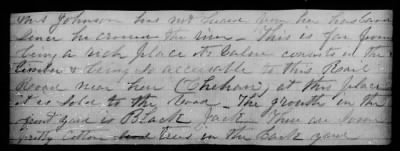 Mrs Johnson has not heard from her husband
since he crossed the river - This is far from
being a rich place its value consists in the
timber & being so accessible to this Rail
Road near here (Chehaw) at this place
it is sold to the Road - The growth in the
front yard is Black Jack - There are some
pretty cotton trees in the back yard